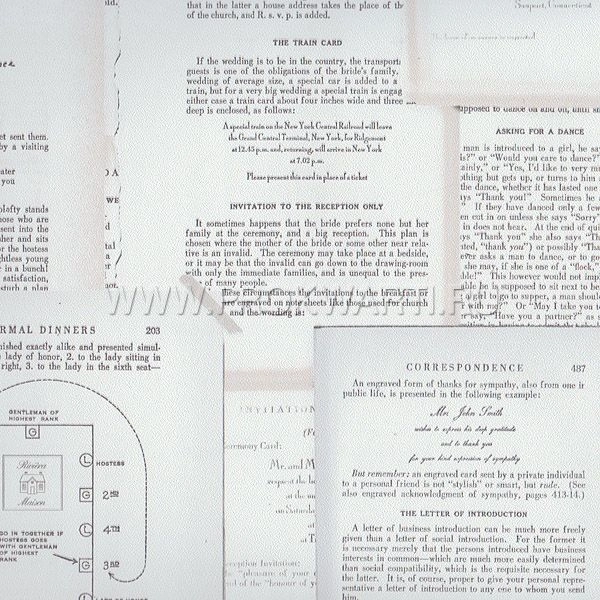 that in the latter a house address takes the place of th
of the church, and R. s. v. p. is added.
THE TRAIN CARD
If the wedding is to be in the country, the transport
guests is one of the obligations of the bride's family.
wedding of average size, a special car is added to a
train, but for a very big wedding a special train is engag
either case a train card about four inches wide and three
deep is enclosed, as follows:
A special train on the New York Central Railroad will leave
the Grand Central Terminal, New York, for Ridgemont
at 12.45 p.m. and, returning, will arrive in New York
at 7.02 p.m.
Please present this card in place of a ticket
INVITATION TO THE RECEPTION ONLY
It sometimes happens that the bride prefers none but her
family at the ceremony, and a big reception. This plan is
chosen where the mother of the bride or some other near rela-
tive is an invalid. The ceremony may take place at a bedside,
or it may be that the invalid can go down to the drawing-room
with only the immediate families, and is unequal to the pres-
of many people.
these circumstances the invitations to the breakfast
engraved on
and the wording is:
Sunport, Connecticut
supposed to dance on and on, until
ASKING FOR A DANCE
man is introduced to a girl, he say
is?" or "Would you care to dance?"
tainly," or "Yes, I'd like to very mu
othing but gets up, or turns to him a
the dance, whether it has lasted one
says "Thank you!" Sometimes he a
" If they have danced only a few
en cut in on unless she says "Sorry"
in does not hear. At the end of qui
ys "Thank you" she also says "Th
ted, "thank you") or possibly "Than
ever asks a man to dance, or to go
she may, if she is one of a "flock,"
ble!" This however would not impl
able he is supposed to sit next to be
a girl to go to supper, a man should
with me?" Or "May I take you to
er say, "Have you a partner?" as s
et sent them.
by a visiting
ater
you
plofty stands
hose who are
sent into the
sher and sits
or the hostess
ghtless young
e in a bunch!
satisfaction,
WE
WWW.MOXWARTI.RU
RMAL DINNERS 203
nished exactly alike and presented simul-
lady of honor, 2. to the lady sitting in
right, 3. to the lady in the sixth seat—
GENTLEMAN OF
HIGHEST RANK
G
L HOSTESS
Rivièra
Maison
G 2ND
L 4TH
G 3RD
GO IN TOGETHER IF
HOSTESS GOES
WITH GENTLEMAN
OF HIGHEST
RANK
INVITATION
Ceremony Card:
Mr. and M
request the
at the
on Saturday
at
eception Invitation:
"pleasure of your
of the "honour of
CORRESPONDENCE 487
An engraved form of thanks for sympathy, also from one in
public life, is presented in the following example:
Mr. John Smith
wishes to express his deep gratitude
and to thank you
for your kind expression of sympathy
But remember: an engraved card sent by a private individual
to a personal friend is not "stylish" or smart, but rude. (See
also engraved acknowledgment of sympathy, pages 413-14.)
THE LETTER OF INTRODUCTION
A letter of business introduction can be much more freely
given than a letter of social introduction. For the former it
is necessary merely that the persons introduced have business
interests in common—which are much more easily determined
than social compatibility, which is the requisite necessary for
the latter. It is, of course, proper to give your personal repre-
sentative a letter of introduction to any one to whom you send
him.